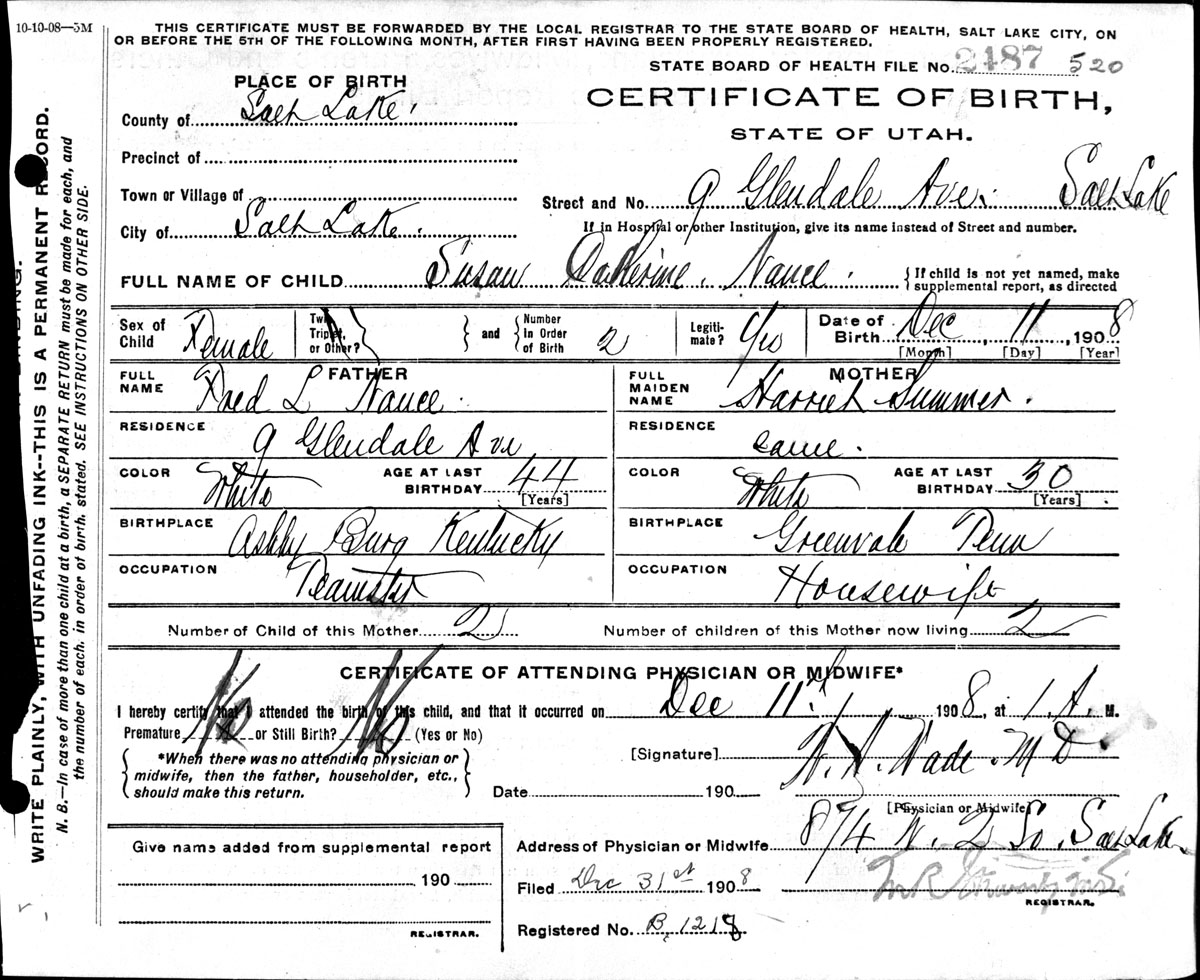 10-10-08—5M
THIS CERTIFICATE MUST BE FORWARDED BY THE LOCAL REGISTRAR TO THE STATE BOARD OF HEALTH, SALT LAKE CITY, ON
OR BEFORE THE 5TH OF THE FOLLOWING MONTH, AFTER FIRST HAVING BEEN PROPERLY REGISTERED.
STATE BOARD OF HEALTH FILE No. 2487 520
PLACE OF BIRTH
CERTIFICATE OF BIRTH,
STATE OF UTAH.
County of Salt Lake.
Precinct of
Town or Village of
Street and No. 9 Glendale Ave. Salt Lake
City of Salt Lake.
If in Hospital or other Institution, give its name instead of Street and number.
FULL NAME OF CHILD Susan Catherine. Nance. {If child is not yet named, make
supplemental report, as directed
Sex of Child Female Twin, Triplet, or Other? } and { Number In Order of Birth 2 Legiti-mate? Yes Date of Birth Dec, 11, 1908
[Month] [Day] [Year]
FATHER
MOTHER
FULL NAME Fred L Nance.
FULL MAIDEN NAME Harriet Summer.
RESIDENCE 9 Glendale Ave
RESIDENCE same.
COLOR White AGE AT LAST BIRTHDAY 44 [Years]
COLOR White AGE AT LAST BIRTHDAY 30 [Years]
BIRTHPLACE Ashby Burg Kentucky
BIRTHPLACE Greenvale Penn
OCCUPATION Teamster
OCCUPATION Housewife
Number of Child of this Mother 2 Number of children of this Mother now living 2
CERTIFICATE OF ATTENDING PHYSICIAN OR MIDWIFE*
I hereby certify that I attended the birth of this child, and that it occurred on Dec 11th 1908, at 1. A. M.
Premature No or Still Birth? No (Yes or No)
*When there was no attending physician or
midwife, then the father, householder, etc.,
should make this return.
[Signature] Wade. M D
Date 190
[Physician or Midwife]
Address of Physician or Midwife 874 W. 2 So. Salt Lake
Filed Dec 31st 1908
REGISTRAR.
Registered No. B, 1218
Give name added from supplemental report
190
REGISTRAR.
WRITE PLAINLY, WITH UNFADING INK--THIS IS A PERMANENT RECORD.
N. B.—In case of more than one child at a birth, a SEPARATE RETURN must be made for each, and
the number of each, in order of birth, stated. SEE INSTRUCTIONS ON OTHER SIDE.